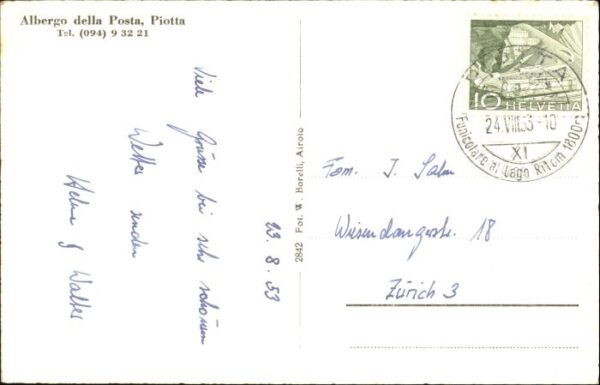 Albergo della Posta, Piotta
Tel. (094) 9 32 21
Viele Grüsse bei sehr schönem
Wetter senden
Helene & Walter
23.8.53
2842 Fot. W. Borelli, Airolo
Fam. J. Salm
Wiesendangerstr. 18
Zürich 3
10 HELVETIA
PIOTTA
24.VIII.53-10
XI
Funicolare al Lago Ritom 1800m